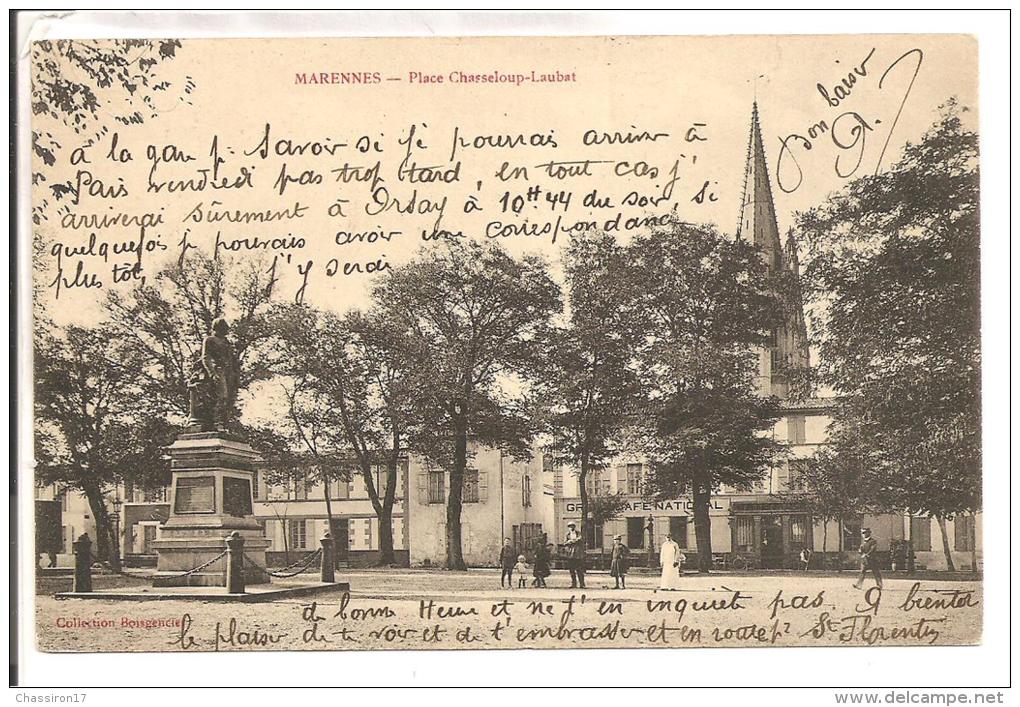 MARENNES — Place Chasseloup-Laubat
Bon baiser
à la gare p. Savoir si je pourrai arriver à
Paris vendredi pas trop tard, en tout cas j'
arriverai sûrement à Orsay à 10H 44 du soir, si
quelquefois je pouvais avoir une correspondance
plus tôt, j'y serai
GRAND CAFE NATIONAL
de bonne Heure et ne t'en inquiète pas. A bientôt
le plaisir de te voir et de t'embrasser et en route pr St Florentin
Collection Boisgencier
Chassiron17
www.delcampe.net